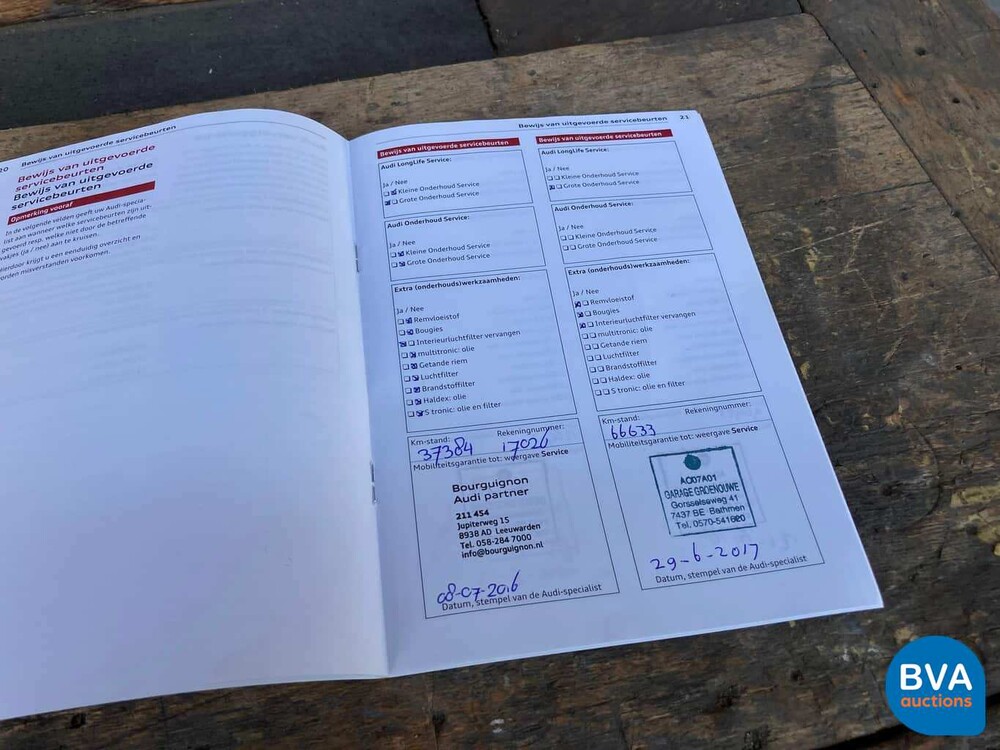 20
Bewijs van uitgevoerde servicebeurten
Bewijs van uitgevoerde
servicebeurten
Bewijs van uitgevoerde
servicebeurten
Opmerking vooraf
In de volgende velden geeft uw Audi-specia-
list aan wanneer welke servicebeurten zijn uit-
gevoerd resp. welke niet door de betreffende
vakjes (ja / nee) aan te kruisen.
Hierdoor krijgt u een eenduidig overzicht en
worden misverstanden voorkomen.
Bewijs van uitgevoerde servicebeurten 21
Bewijs van uitgevoerde servicebeurten
Audi LongLife Service:
Ja / Nee
Kleine Onderhoud Service
Grote Onderhoud Service
Audi Onderhoud Service:
Ja / Nee
Kleine Onderhoud Service
Grote Onderhoud Service
Extra (onderhouds)werkzaamheden:
Ja / Nee
Remvloeistof
Bougies
Interieurluchtfilter vervangen
multitronic: olie
Getande riem
Luchtfilter
Brandstoffilter
Haldex: olie
S tronic: olie en filter
Km-stand: Rekeningnummer:
37384 17026
Mobiliteitsgarantie tot: weergave Service
Bourguignon
Audi partner
211 454
Jupiterweg 15
8938 AD Leeuwarden
Tel. 058-284 7000
info@bourguignon.nl
08-07-2016
Datum, stempel van de Audi-specialist
Bewijs van uitgevoerde servicebeurten
Audi LongLife Service:
Ja / Nee
Kleine Onderhoud Service
Grote Onderhoud Service
Audi Onderhoud Service:
Ja / Nee
Kleine Onderhoud Service
Grote Onderhoud Service
Extra (onderhouds)werkzaamheden:
Ja / Nee
Remvloeistof
Bougies
Interieurluchtfilter vervangen
multitronic: olie
Getande riem
Luchtfilter
Brandstoffilter
Haldex: olie
S tronic: olie en filter
Km-stand: Rekeningnummer:
66633
Mobiliteitsgarantie tot: weergave Service
AC07A01
GARAGE GROENOUWE
Gorsselseweg 41
7437 BE Bathmen
Tel. 0570-541620
29-6-2017
Datum, stempel van de Audi-specialist
BVA
auctions